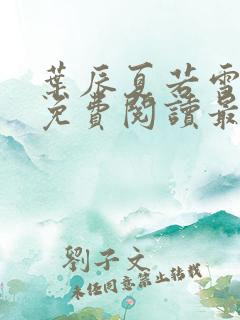 葉辰夏若雪
免費閱讀最
劉子文
未经同意禁止转载